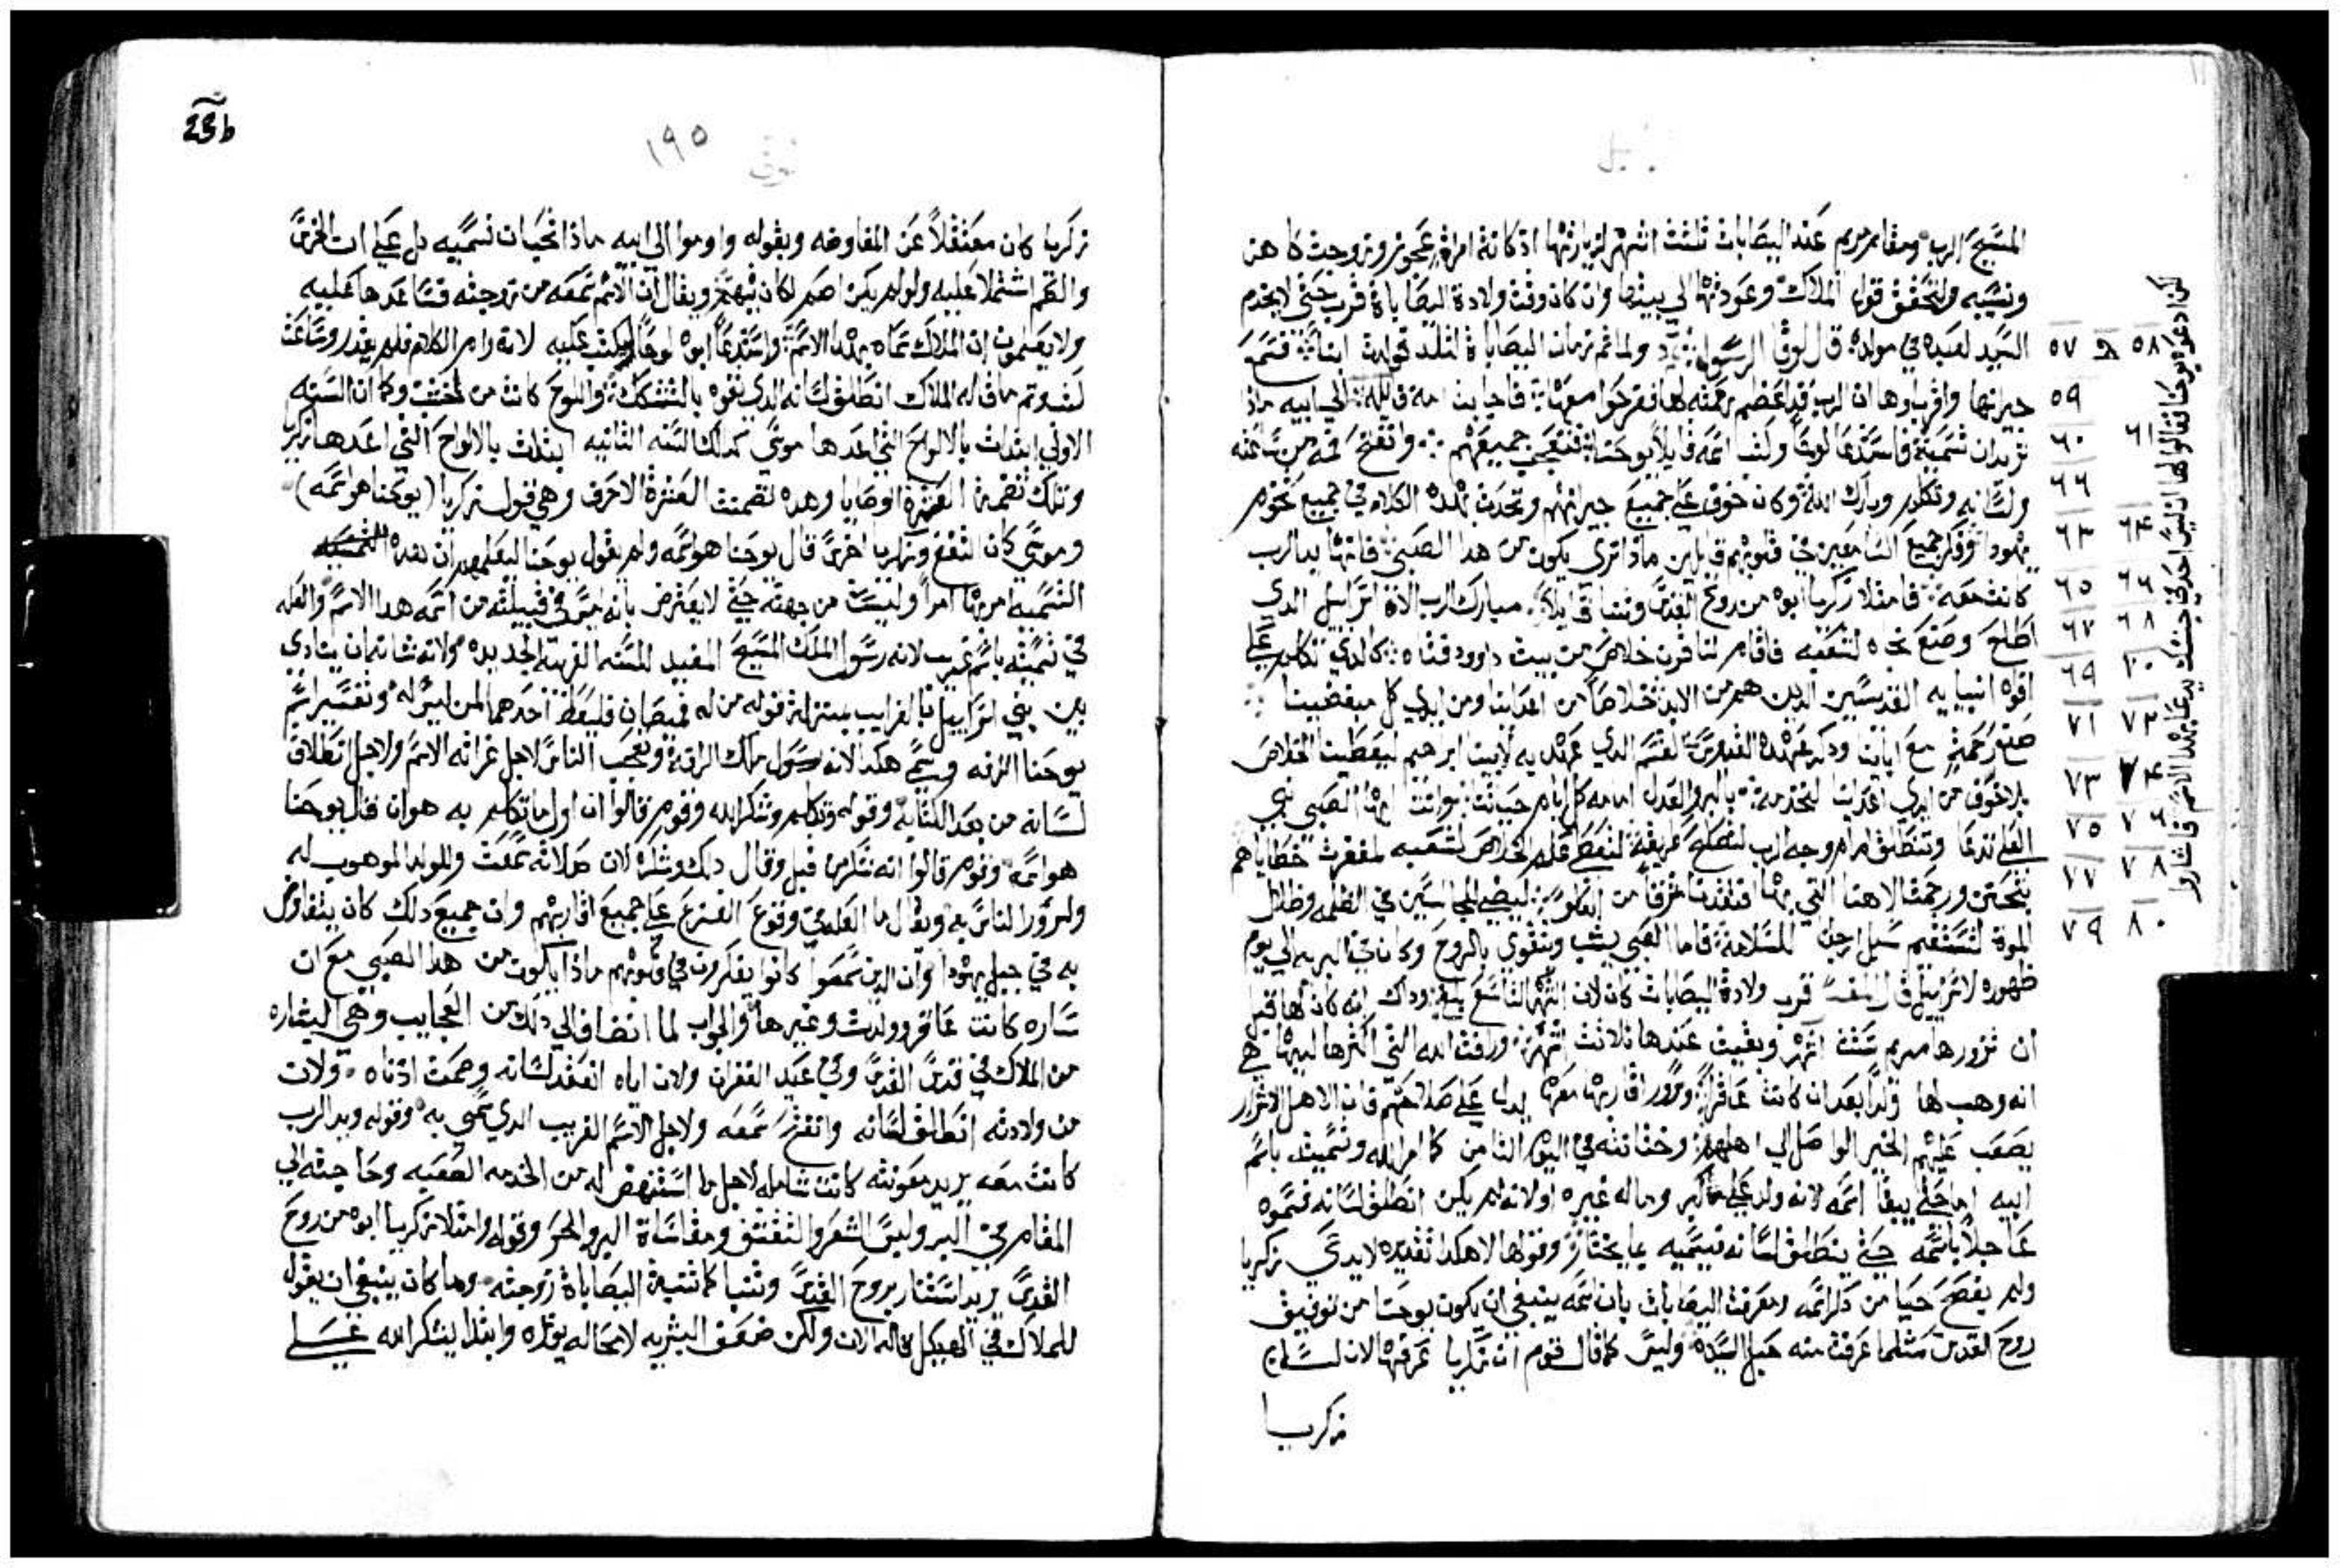 المسيح الرب ومقام مريم عند اليصابات تلثت اشهر لزيارتها اذ كانة امراة عجوز وزوجت كاهن
ونسيبه ولتحقق قول الملاك وعودتها الي بيتها وان كان وقت ولادة اليصاباة قرب حتي لايخدم
السيد لعبده في مولده قال لوقا الرسول ولما تم زمان اليصاباة لتلد فولدة ابنا فسمع
جيرنها واقرباوها ان الرب قد اعظم رحمته لها ففرحوا معها فاجابت امه قالله الي ابيه ماذا
تريد ان تسميه فاستدعا لوحا وكتب اسمه قايلا يوحنا فتعجب جميعهم وانفتح فمه من ساعته
ولسانه وتكلم وبارك الله وكان خوف علي جميع جيرانهم وتحدث بهذه الكلام في جميع تخوم
يهودا وفكر جميع السامعين في قلوبهم قايلين ماذا تري يكون من هدا الصبي فانها يد الرب
كانت معه فامتلا زكريا ابوه من روح القدس وتنبا قايلا مبارك الرب الاه اسراييل الدي
اطلع وصنع نجاه لشعبه فاقام لنا قرن خلاص من بيت داوود فتاه كالدي تكلم علي
افوه انبيايه القدسين الدين هم من الابد خلاصا من اعداينا ومن ايدي كل مبغضينا
صنع رحمته مع اباينا ودكر عهده القدس القسم الدي عهد به لابينا ابرهيم ليعطينا الخلاص
بلا خوف من ايدي اعداينا لنخدمه بالبر والعدل امامه كل ايام حياتنا وانت ايها الصبي نبي
العلي تدعا وتنطلق امام وجه الرب لتصلح طريقه لتعطي علم الخلاص لشعبه لمغفرت خطاياهم
بتحنن ورحمت الاهنا التي بها افتقدنا مشرقا من العلو ليضي للجالسين في الظلمه وظلال
الموة لتستقيم سبل ارجلنا للسلامة فاما الصبي يشب ويتقوي بالروح وكان في البريه الي يوم
ظهوره لاسرايل قال المفسر قرب ولادة اليصابات كان لان الشهر التاسع بلغ ودلك انه كان لها قبل
ان تزورها مريم ستت اشهر وبقيت عندها تلاتت اشهر ورافت الله التي اكثرها ليها هي
انه وهب لها ولدا بعد ان كانت عاقرا وسرور اقاربها معها يدل علي صلاحهم فان الاهل الاشرار
يصعب عليهم الخير الواصل الي اهلهم وختانته في اليوم التامن كما امر الله وتسميته باسم
ابيه اما حتي يبقا اسمه لانه ولد علي كبر وماله غيره او لانه لم يكن انطلق لسانه فسموه
عاجلا باسمه حتي ينطلق لسانه فيسميه بما يختار وقولها لا هكدا تقديره لا يدعي زكريا
ولم يفصح حيا من دكر اسمه ومعرفت اليصابات بان اسمه ينبغي ان يكون يوحنا من توفيق
روح القدس مثلما عرفت منه حبل السيده وليس كما قال قوم ان زكريا عرفها لان لسان
زكريا
لكن ادعوه يوحنا فقالوا لها ان ليس احد في جنسك يدعا بهدا الاسم فاشاروا
٥٨ و ٥٧
٥٩
٦١ ٦٠
٦٦
٦٤ ٦٣
٦٦ ٦٥
٦٨ ٦٧
٧٠ ٦٩
٧٣ ٧١
٧٤ ٧٣
٧٦ ٧٥
٧٨ ٧٧
٨٠ ٧٩
23b
١٩٥
زكريا كان معتقلا عن المفاوضه وبقوله واوموا الي ابيه ماذا تحب ان نسميه دل علي ان الخرس
والصمم اشتملا عليه ولو لم يكن اصم لكان يفهم ويقال ان الاسم سمعه من زوجته فساعدها عليه
ولا يعلمون ان الملاك سماه بهدا الاسم واستدعا ابوه لوحا ليكتب عليه لانه رام الكلام فلم يقدر وساعت
كتب وتم ما قاله الملاك انطلق لسانه الدي تفوه بالتشكك واللوح كانت من خشب وكما ان السنه
الاولي ابتدات بالالواح التي اعدها موسي كدلك السنه التانيه ابتدات بالالواح التي اعدها زكريا
وتلك تضمنة العشرة الوصايا وهده تضمنت العشرة الاحرف وهي قول زكريا (يوحنا هو اسمه)
وموسي كان التغ وزكريا اخرس قال يوحنا هو اسمه ولم يقول يوحنا ليعلمهم ان هده التسميه
التسميه امر بها امرا وليست من جهته حتي لا يعترض بانه ليس في قبيلته من اسمه هدا الاسم والعله
في تسميته باسم غريب لانه رسول الملك المسيح المفيد السنه الغريبه الجديده ولانه شانه ان ينادي
بين بني اسراييل بالغرايب بمنزلة قوله من له قميصان فليعط احدهما لمن ليس له وتفسير اسم
يوحنا الرافه وسمي هكدا لانه رسول ملك الرافه وتعجب الناس لاجل غرابه الاسم ولاجل انطلاق
لسانه من بعد الكتابه وقوله وتكلم وشكر الله وقوم قالوا ان اول ما تكلم به هو ان قال يوحنا
هو اسمه وقوم قالوا انه شكر من قبل وقال دلك وشكره لان صلاته سمعت وللمولد الموهوب له
ولسرور الناس به ويقال ما العله في وقوع الفزع علي جميع اقاربهم وان جميع دلك كان يتفاوض
به في جبل يهودا وان الدين سمعوا كانوا يفكرون في قلوبهم ماذا يكون من هدا الصبي مع ان
ساره كانت عاقر وولدت وغيرها والجواب لما انضاف الي دلك من العجايب وهي البشاره
من الملاك في قدس القدس وفي عيد الغفران ولان اباه انعقد لسانه وصمت ادناه ولان
من ولادته انطلق لسانه وانفتح سمعه ولاجل الاسم الغريب الدي سمي به وقوله ويد الرب
كانت معه يريد معونته كانت شامله لاجل ما استنهض له من الخدمه الصعبه وحاجته الي
المقام في البر وليس الشعر والتقشف ومقاساة البر والحر وقوله وامتلا زكريا ابوه من روح
القدس يريد استنار بروح القدس وتنبا كما تنبية اليصاباة زوجته وما كان ينبغي ان يقول
للملاك في الهيكل قاله الان ولكن ضعف البشريه لامحاله يوتره وابتدا يشكر الله علي